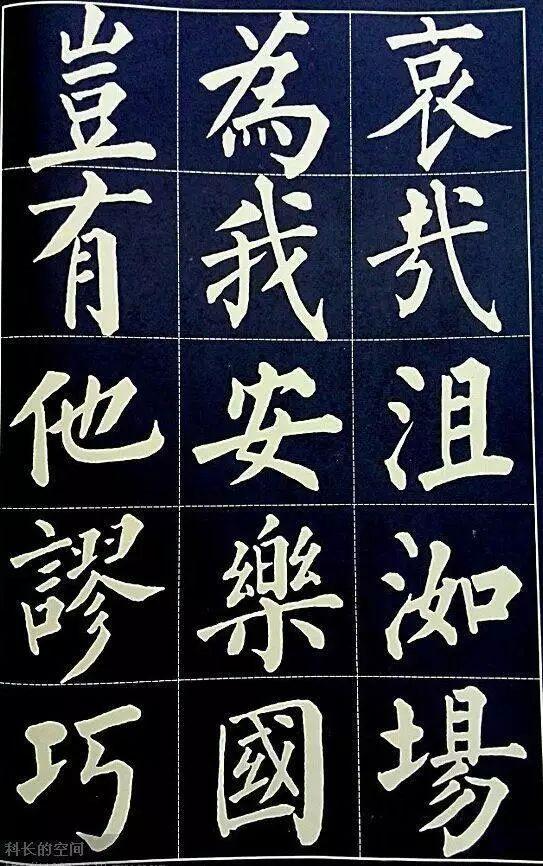 哀哉沮洳場
為我安樂國
豈有他謬巧
科长的空间